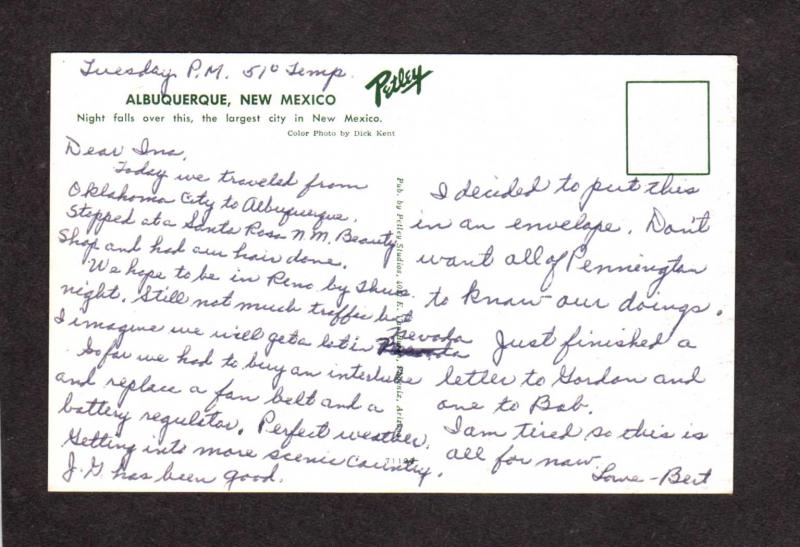 Tuesday P.M. 51° Temp.
Petley
ALBUQUERQUE, NEW MEXICO
Night falls over this, the largest city in New Mexico.
Color Photo by Dick Kent
Dear Ina,
Today we traveled from
Oklahoma City to Albuquerque.
Stopped at a Santa Rosa N.M. Beauty
Shop and had our hair done.
We hope to be in Reno by Thurs.
night. Still not much traffic but
I imagine we will get a lot in Nevada
So far we had to buy an
and replace a fan belt and a
battery regulator. Perfect weather.
Getting into more scenic Country.
J.G. has been good.
Pub. by Petley Studios, E. Phoenix, Ariz.
I decided to put this
in an envelope. Don't
want all of Pennington
to know our doings.
Just finished a
letter to Gordon and
one to Bob.
I am tired so this is
all for now.
Love - Bert